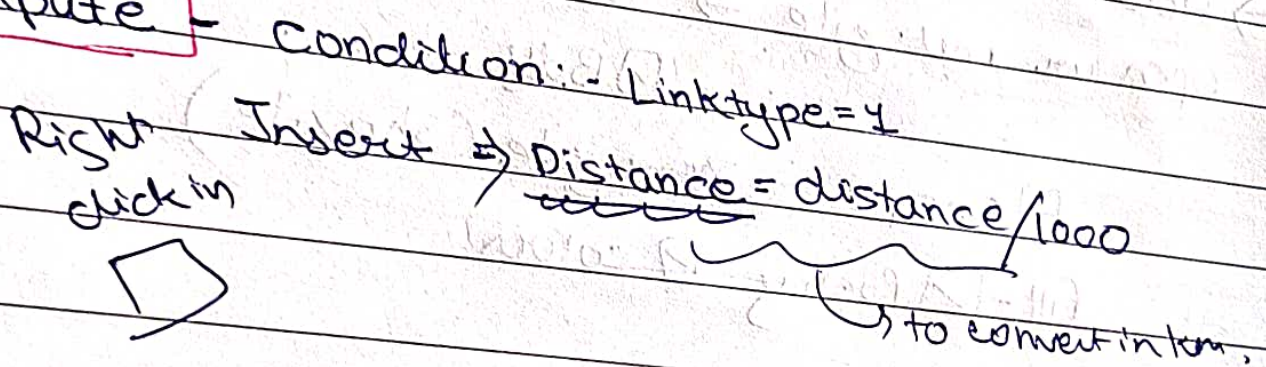 pute - Condition:- Linktype=1
Right Insert ⇒ Distance = distance/1000
click in
↳ to convert in km.